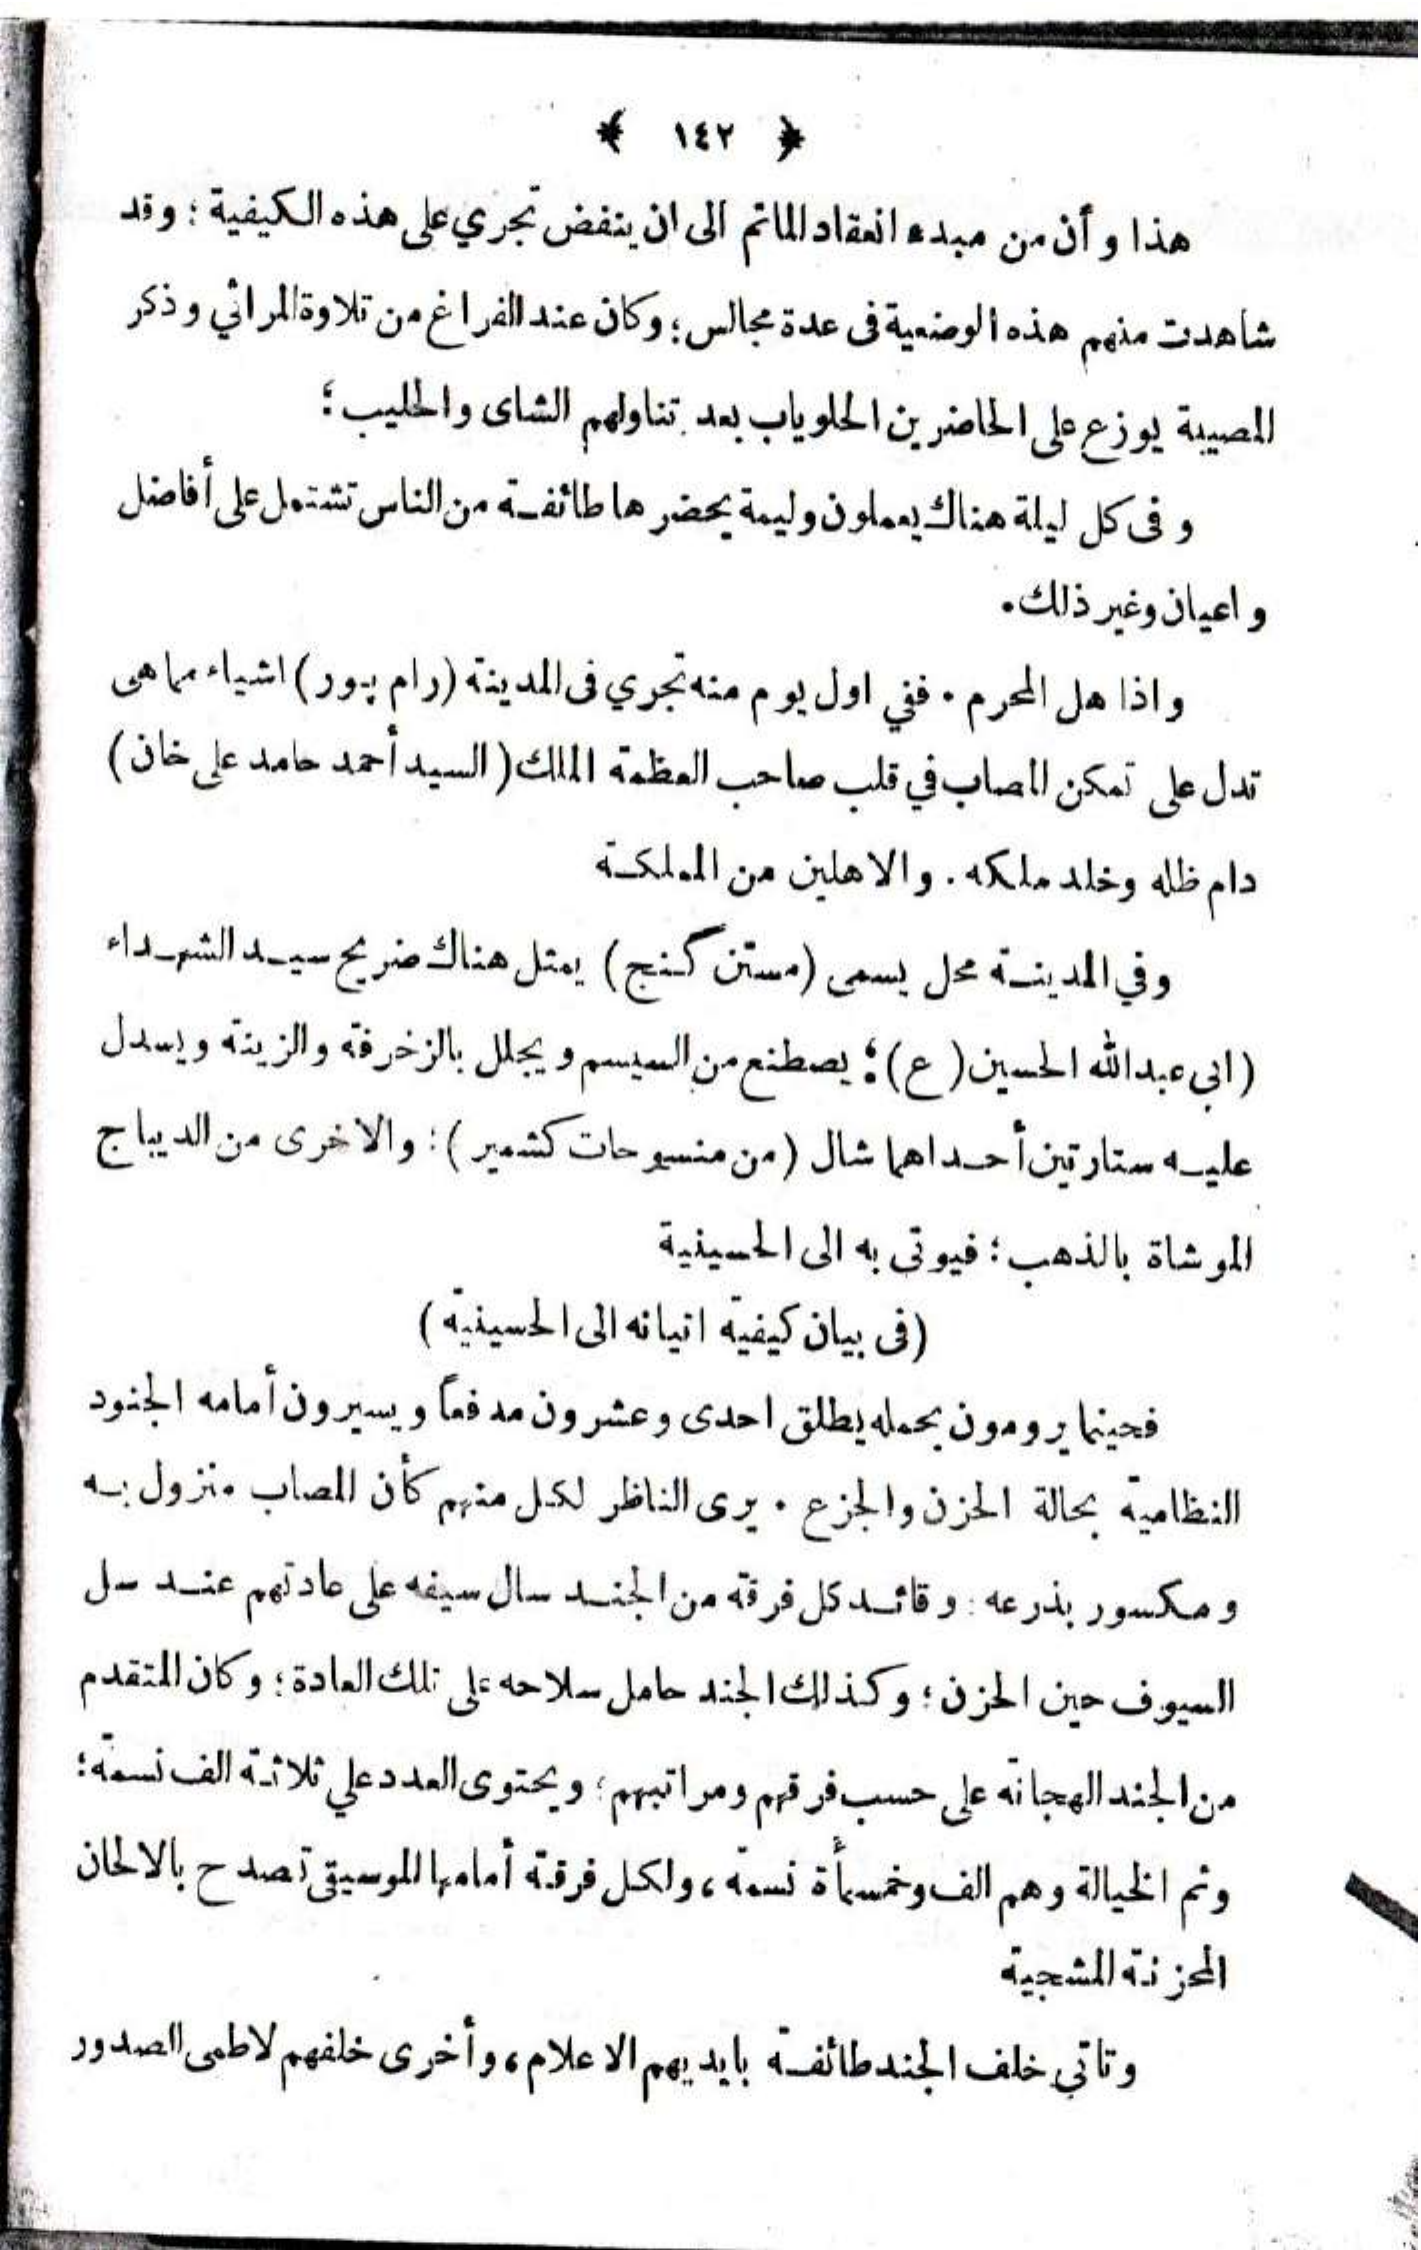 ﴿ ١٤٢ ﴾
هذا و أن من مبدء انعقاد الماتم الى ان ينفض تجري على هذه الكيفية ؛ وقد
شاهدت منهم هذه الوضعية فى عدة مجالس ؛ وكان عند الفراغ من تلاوة المراثي و ذكر
المصيبة يوزع على الحاضرين الحلوياب بعد تناولهم الشاى والحليب ؛
و فى كل ليلة هناك يعملون وليمة يحضر ها طائفة من الناس تشتمل على أفاضل
و اعيان وغير ذلك .
واذا هل المحرم . ففي اول يوم منه تجري فى المدينة (رام پور) اشياء مما هى
تدل على تمكن المصاب في قلب صاحب العظمة الملك ( السيد أحمد حامد على خان )
دام ظله وخلد ملكه . والاهلين من المملكة
وفي المدينة محل يسمى (مستن گنج) يمثل هناك ضريح سيد الشهداء
(ابى عبدالله الحسين (ع) ؛ يصطنع من السيسم و يجلل بالزخرفة والزينة ويسدل
عليه ستارتين أحداهما شال (من منسوحات كشمير) ؛ والاخرى من الديباج
الموشاة بالذهب ؛ فيوتى به الى الحسينية
(فى بيان كيفية اتيانه الى الحسينية)
فحينما يرومون بحمله يطلق احدى وعشرون مدفعاً ويسيرون أمامه الجنود
النظامية بحالة الحزن والجزع . يرى الناظر لكل منهم كأن المصاب منزول به
ومكسور بذرعه : وقائد كل فرقة من الجند سال سيفه على عادتهم عند سل
السيوف حين الحزن ؛ وكذلك الجند حامل سلاحه على تلك العادة ؛ وكان المتقدم
من الجند الهجانة على حسب فرقهم ومراتبهم ؛ ويحتوى العدد علي ثلاثة الف نسمة ؛
وثم الخيالة وهم الف وخمسمأة نسمة ، ولكل فرقة أمامها الموسيقى تصدح بالالحان
المحزنة المشجية
وتاتي خلف الجند طائفة بايديهم الاعلام ، وأخرى خلفهم لاطمى الصدور